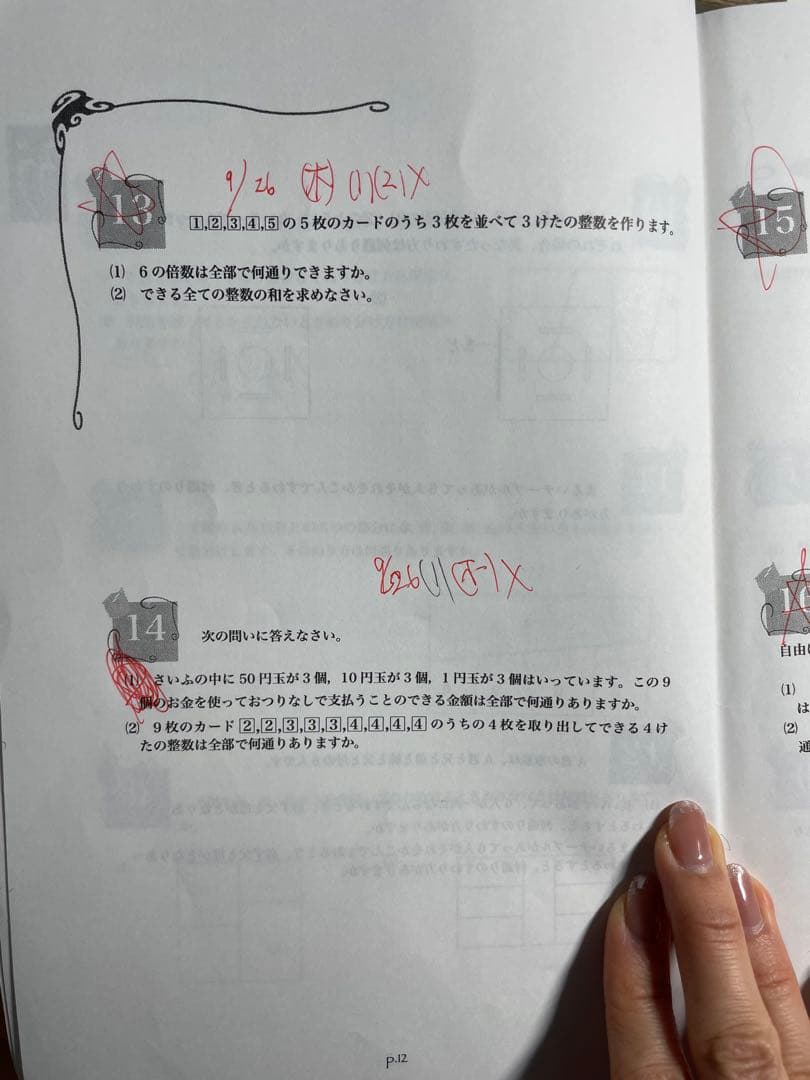 9/26 (木) (1)(2)×
13
1,2,3,4,5 の5枚のカードのうち3枚を並べて3けたの整数を作ります。
(1) 6の倍数は全部で何通りできますか。
(2) できる全ての整数の和を求めなさい。
15
9/26(1)(木)×
14
次の問いに答えなさい。
(1) さいふの中に50円玉が3個，10円玉が3個，1円玉が3個はいっています。この9
個のお金を使っておつりなしで支払うことのできる金額は全部で何通りありますか。
(2) 9枚のカード 2,2,3,3,3,4,4,4,4 のうちの4枚を取り出してできる4け
たの整数は全部で何通りありますか。
自由に
(1)
は
(2)
通
p.12